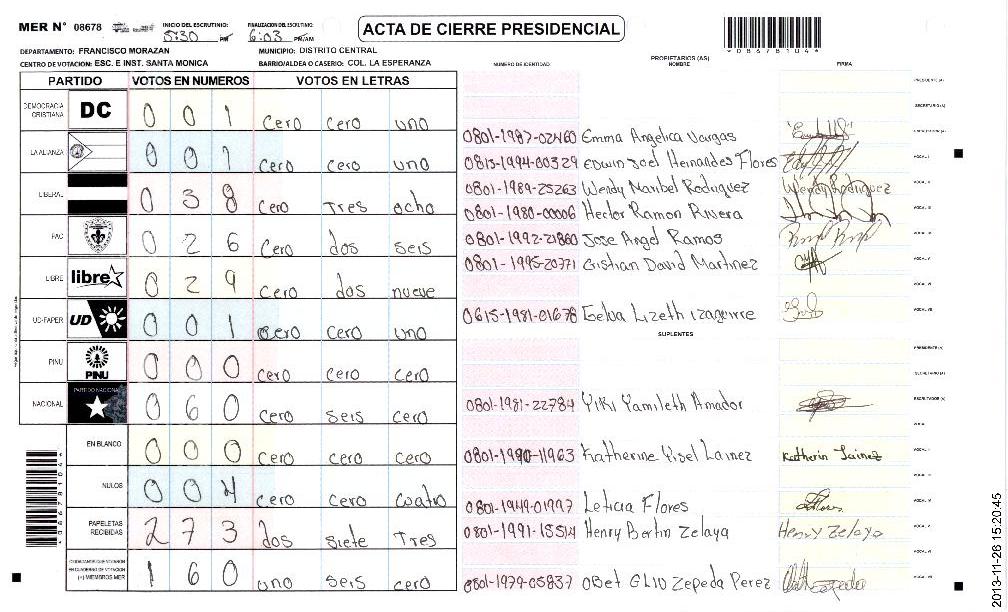 MER N° 08678 INICIO DEL ESCRUTINIO: 5:30 PM FINALIZACION DEL ESCRUTINIO: 6:03 PM/AM ACTA DE CIERRE PRESIDENCIAL
*08678104*
DEPARTAMENTO: FRANCISCO MORAZAN MUNICIPIO: DISTRITO CENTRAL
CENTRO DE VOTACIÓN: ESC. E INST. SANTA MONICA BARRIO/ALDEA O CASERIO: COL. LA ESPERANZA
PARTIDO VOTOS EN NUMEROS VOTOS EN LETRAS
DEMOCRACIA CRISTIANA DC 0 0 1 cero cero uno
LA ALIANZA 0 0 1 cero cero uno
LIBERAL 0 3 8 cero Tres ocho
PAC 0 2 6 cero dos seis
LIBRE libre 0 2 9 cero dos nueve
UD-FAPER UD 0 0 1 cero cero uno
PINU PINU 0 0 0 cero cero cero
NACIONAL PARTIDO NACIONAL 0 6 0 cero seis cero
EN BLANCO 0 0 0 cero cero cero
NULOS 0 0 4 cero cero cuatro
PAPELETAS RECIBIDAS 2 7 3 dos siete Tres
CIUDADANOS QUE VOTARON EN CUADERNO DE VOTACION (+) MIEMBROS MER 1 6 0 uno seis cero
NUMERO DE IDENTIDAD PROPIETARIOS (AS) NOMBRE FIRMA
PRESIDENTE (A)
SECRETARIO (A)
0801-1987-02460 Emma Angelica Vargas
0815-1994-00329 Edwin Joel Hernandes Flores VOCAL I
0801-1989-25263 Wendy Maribel Rodriguez Wendy Rodriguez VOCAL II
0801-1980-00006 Hector Ramon Rivera VOCAL III
0801-1992-21860 Jose Angel Ramos VOCAL IV
0801-1995-20771 Cristian David Martinez VOCAL V
VOCAL VI
0615-1981-01678 Lizeth izaguirre VOCAL VII
SUPLENTES
PRESIDENTE (A)
SECRETARIO (A)
0801-1981-22784 Yiki Yamileth Amador ESCRUTADOR (A)
VOCAL I
0801-1990-11963 Katherine Yisel Lainez Katherin Lainez VOCAL II
VOCAL III
0801-1949-01997 Leticia Flores VOCAL IV
0801-1991-15514 Henry Bertin Zelaya Henry Zelaya VOCAL V
VOCAL VI
0801-1979-05837 Obet Eliu Zepeda Perez VOCAL VII
2013-11-26 15:20:45